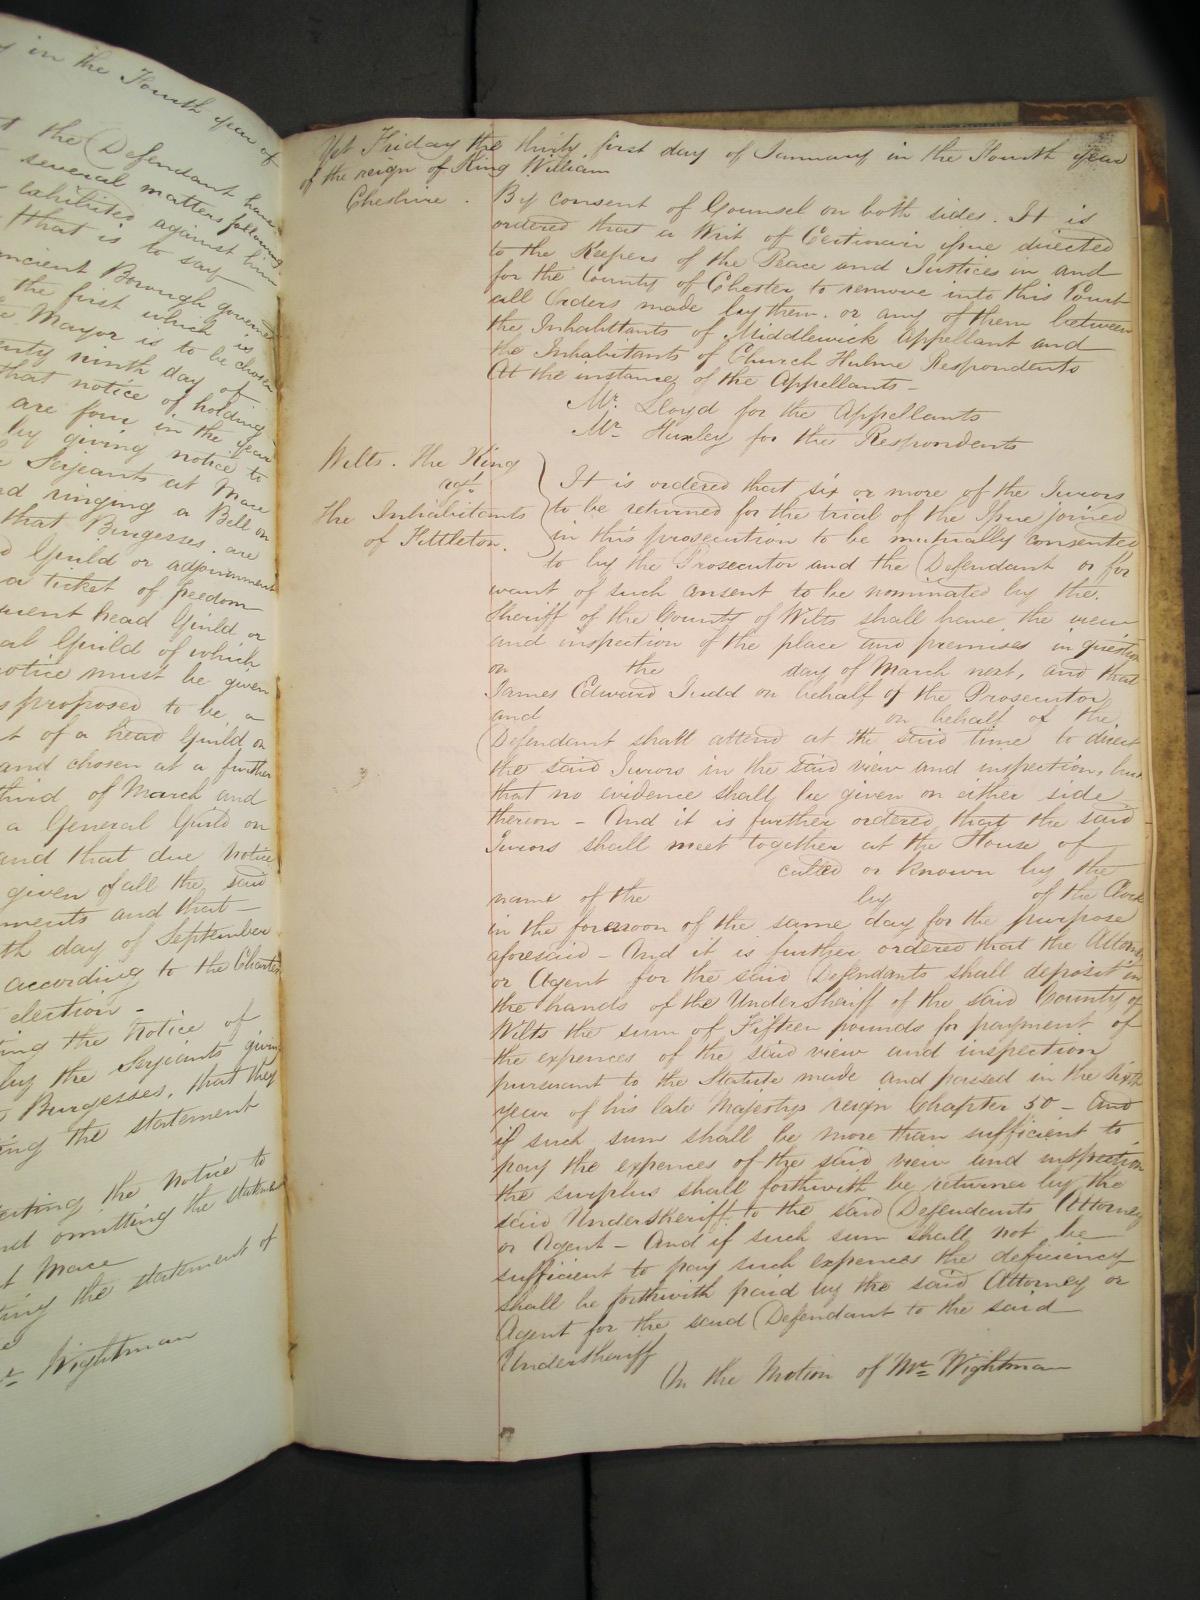 in the Fourth year of
the Defendant have
several matters following
exhibited against him
that is to say
ancient Borough governed
the first which is
Mayor is to be chosen
ninth day of
that notice of holding
are four in the year
by giving notice to
Serjeants at Mace
and ringing a Bell on
that Burgesses are
Guild or adjournment
a ticket of freedom
quent head Guild or
al Guild of which
notice must be given
proposed to be a
t of a head Guild or
and chosen at a further
third of March and
a General Guild on
and that due notice
given of all the said
ments and that
th day of September
according to the Charter
election -
ing the notice of
by the Serjeants giving
Burgesses, that they
ing the statement
the notice to
omitting the statement
t Mace
ting the statement of
Wightman
Yet Friday the thirty first day of January in the Fourth year
of the reign of King William
Cheshire . By consent of Counsel on both sides. It is
ordered that a Writ of Certiorari issue directed
to the Keepers of the Peace and Justices in and
for the County of Chester to remove into this Court
all Orders made by them. or any of them between
the Inhabitants of Middlewick Appellant and
the Inhabitants of Church Hulme Respondents
At the instance of the Appellants -
Mr. Lloyd for the Appellants
Mr. Huxley for the Respondents
Wilts. The King
agt.
The Inhabitants
of Fittleton.
It is ordered that six or more of the Jurors
to be returned for the trial of the Issue joined
in this prosecution to be mutually consented
to by the Prosecutor and the Defendant or for
want of such consent to be nominated by the.
Sheriff of the County of Wilts shall have the view
and inspection of the place and premises in question
on the day of March next, and that
James Edward Judd on behalf of the Prosecutor
and on behalf of the
Defendant shall attend at the said time to direct
the said Jurors in the said view and inspection, but
that no evidence shall be given on either side
thereon - And it is further ordered that the said
Jurors shall meet together at the House of
called or known by the
name of the by of the Clock
in the forenoon of the same day for the purpose
aforesaid - And it is further ordered that the Attorney
or Agent for the said Defendants shall deposit in
the hands of the Undersheriff of the said County of
Wilts the sum of Fifteen pounds for payment of
the expences of the said view and inspection
pursuant to the Statute made and passed in the sixth
year of his late Majestys reign Chapter 50 - And
if such sum shall be more than sufficient to
pay the expences of the said view and inspection
the surplus shall forthwith be returned by the
said Undersheriff to the said Defendants Attorney
or Agent - And if such sum shall not be
sufficient to pay such expences the deficiency
shall be forthwith paid by the said Attorney or
Agent for the said Defendant to the said
Undersheriff
On the Motion of Mr. Wightman